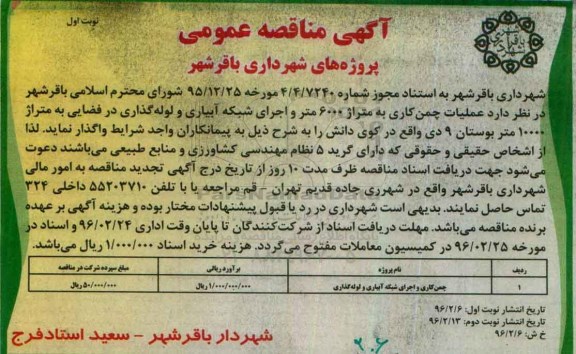 نوبت اول
آگهی مناقصه عمومی
پروژه‌های شهرداری باقرشهر
شهرداری باقرشهر به استناد مجوز شماره ۴/۴/۷۲۴۰ مورخه ۹۵/۱۲/۲۵ شورای محترم اسلامی باقرشهر
در نظر دارد عملیات چمن‌کاری به متراژ ۶۰۰۰ متر و اجرای شبکه آبیاری و لوله‌گذاری در فضایی به متراژ
۱۰۰۰۰ متر بوستان ۹ دی واقع در کوی دانش را به شرح ذیل به پیمانکاران واجد شرایط واگذار نماید. لذا
از اشخاص حقیقی و حقوقی که دارای گرید ۵ نظام مهندسی کشاورزی و منابع طبیعی می‌باشند دعوت
می‌شود جهت دریافت اسناد مناقصه ظرف مدت ۱۰ روز از تاریخ درج آگهی تجدید مناقصه به امور مالی
شهرداری باقرشهر واقع در شهرری جاده قدیم تهران - قم مراجعه یا با تلفن ۵۵۲۰۳۷۱۰ داخلی ۳۲۴
تماس حاصل نمایند. بدیهی است شهرداری در رد یا قبول پیشنهادات مختار بوده و هزینه آگهی بر عهده
برنده مناقصه می‌باشد. مهلت دریافت اسناد از شرکت‌کنندگان تا پایان وقت اداری ۹۶/۰۲/۲۴ و اسناد در
مورخه ۹۶/۰۲/۲۵ در کمیسیون معاملات مفتوح می‌گردد. هزینه خرید اسناد ۱/۰۰۰/۰۰۰ ریال می‌باشد.
ردیف نام پروژه برآورد ریالی مبلغ سپرده شرکت در مناقصه
۱ چمن‌کاری و اجرای شبکه آبیاری و لوله‌گذاری ۱/۰۰۰/۰۰۰/۰۰۰ ریال ۵۰/۰۰۰/۰۰۰ ریال
تاریخ انتشار نوبت اول: ۹۶/۲/۶
تاریخ انتشار نوبت دوم: ۹۶/۲/۱۳
خ ش: ۹۶/۲/۶
۲۰۶
شهردار باقرشهر - سعید استادفرج